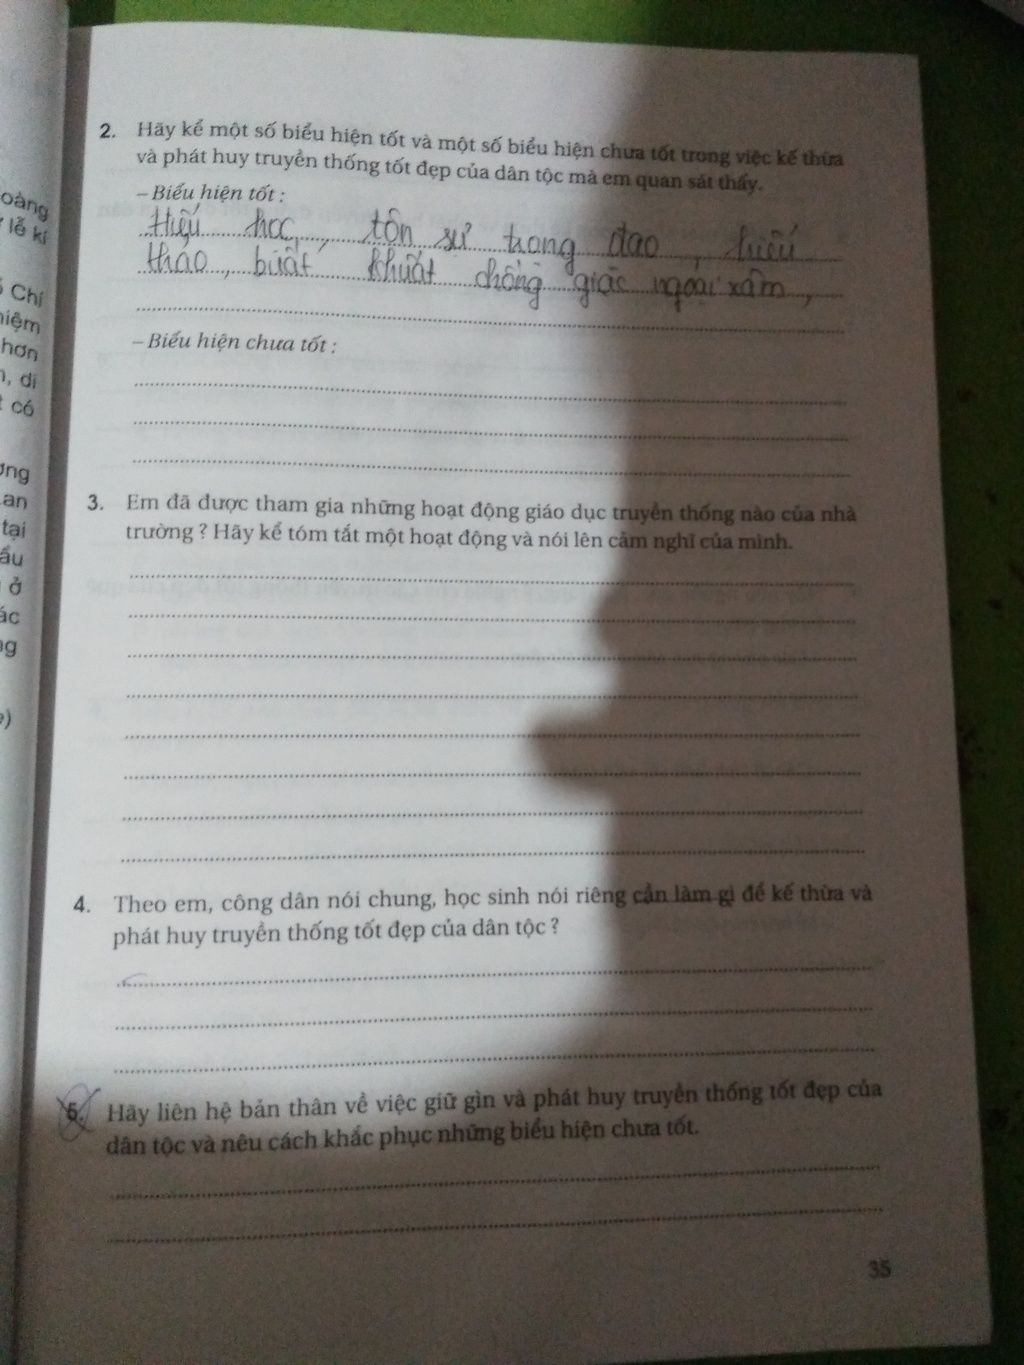 oàng
lễ kí
Chí
niệm
hơn
, di
có
ơng
an
tại
ẩu
ở
ác
ng
2. Hãy kể một số biểu hiện tốt và một số biểu hiện chưa tốt trong việc kế thừa
và phát huy truyền thống tốt đẹp của dân tộc mà em quan sát thấy.
– Biểu hiện tốt :
Hiếu học, tôn sư trọng đạo, hiếu
thảo, bất khuất chống giặc ngoại xâm,
– Biểu hiện chưa tốt :
3. Em đã được tham gia những hoạt động giáo dục truyền thống nào của nhà
trường ? Hãy kể tóm tắt một hoạt động và nói lên cảm nghĩ của mình.
4. Theo em, công dân nói chung, học sinh nói riêng cần làm gì để kế thừa và
phát huy truyền thống tốt đẹp của dân tộc ?
5. Hãy liên hệ bản thân về việc giữ gìn và phát huy truyền thống tốt đẹp của
dân tộc và nêu cách khắc phục những biểu hiện chưa tốt.
35